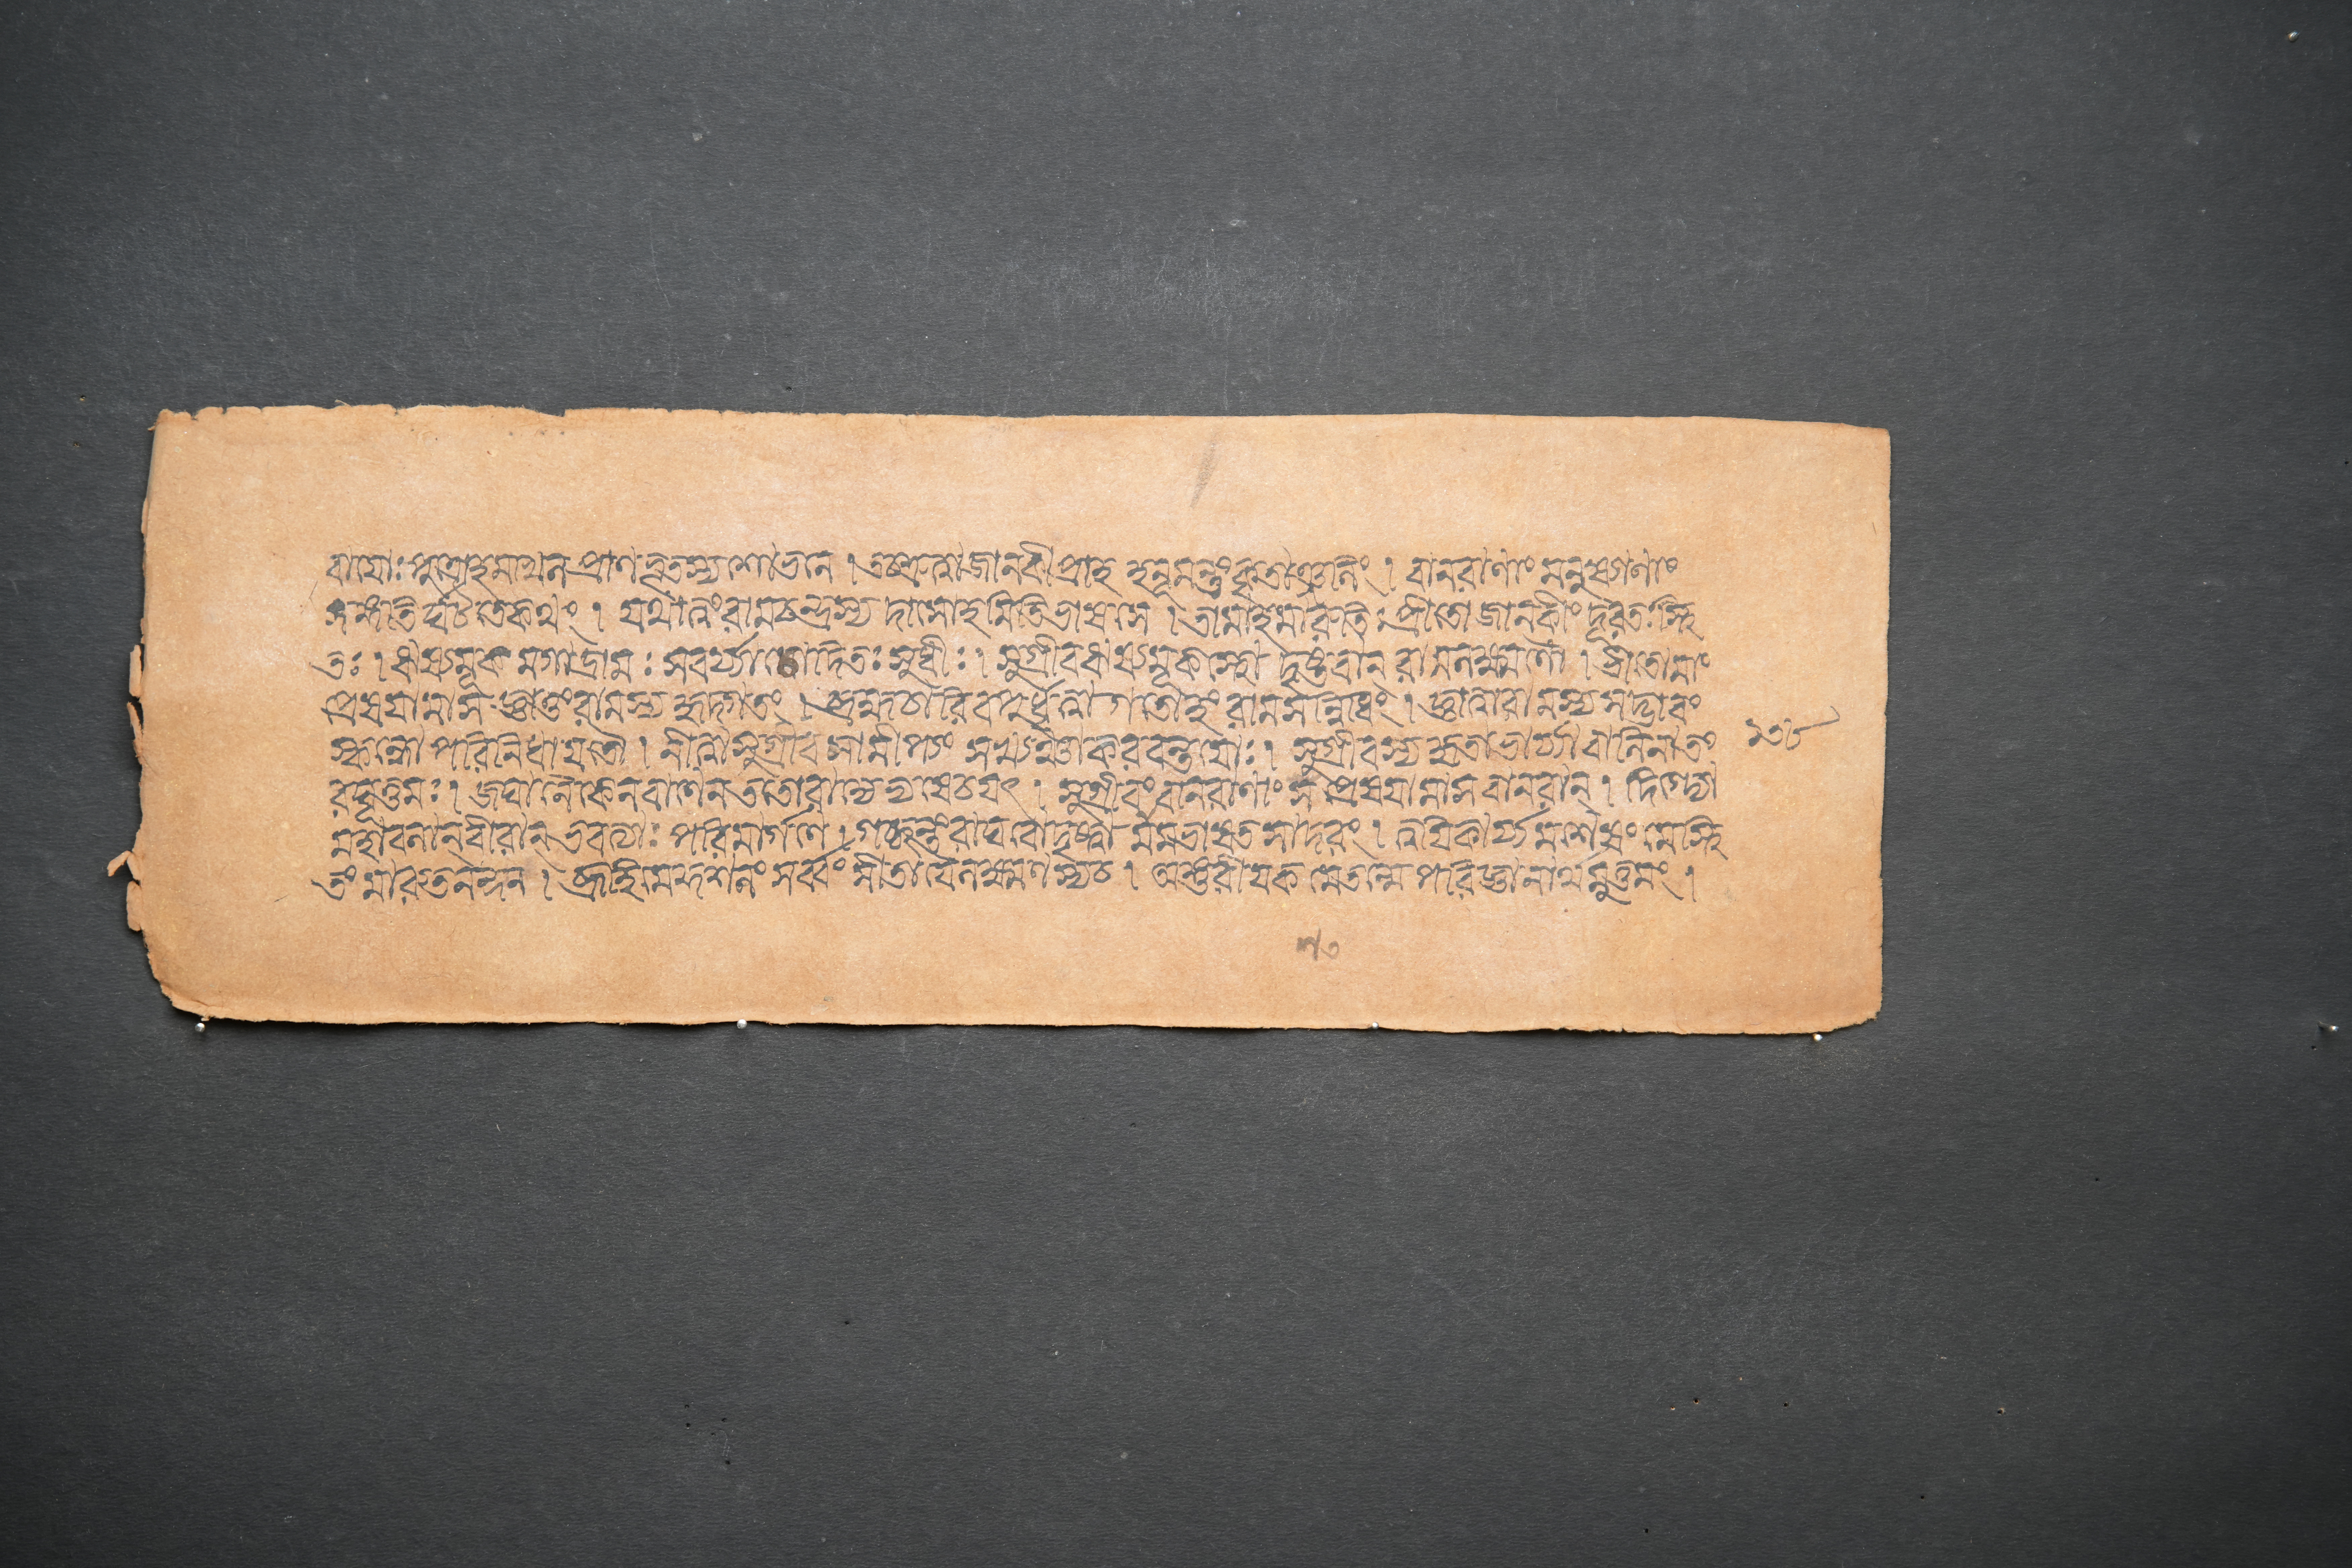 বায়োঃ পুত্রোহমখিলপ্রাণভূতস্য শোভনে । তচ্ছ্রুত্বা জানকী প্রাহ হনূমন্তং কৃতাঞ্জলিং । বানরাণাং মনুষ্যাণাং
সঙ্গতির্ঘটতে কথং । যথা ত্বং রামচন্দ্রস্য দাসোহমিতি ভাষসে । তামাহ মারুতিঃ প্রীতো জানকীং পুরতঃ স্থি
তঃ । ঋষ্যমূকমগাদ্রামঃ সবর্য্যা নোদিতঃ সুধীঃ । সুগ্রীব ঋষ্যমূকস্থো দৃষ্টবান্ রামলক্ষ্মণৌ । ভীতো মাং
প্রেষয়ামাস জ্ঞাতুং রামস্য হৃদ্গতং । ব্রহ্মচারিবপুর্ধৃত্বা গতোহং রামসন্নিধিং । জ্ঞাত্বা রামস্য সদ্ভাবং
স্কন্ধোপরি নিধায় তৌ । নীত্বা সুগ্রীবসামীপ্যং সখ্যঞ্চাকরবন্তয়োঃ । সুগ্রীবস্য হৃতা ভার্য্যা বালিনা তং
রঘূত্তমঃ । জঘানৈকেন বাণেন ততো রাজ্যেভ্যষেচয়ৎ । সুগ্রীবং বানরাণাং স প্রেষয়ামাস বানরান্ । দিগ্ভ্যো
মহাবলান্ বীরান্ ভবত্যাঃ পরিমার্গণে । গচ্ছন্তং রাঘবো দৃষ্ট্বা মমভাষত সাদরং । ত্বয়ি কার্য্যমশেষং মে স্থি
তং মারুতনন্দন । ব্রূহি মে কুশলং সর্ব্বং সীতায়ৈ লক্ষ্মণস্য চ । অঙ্গুরীয়কমেতন্মে পরিজ্ঞানার্থমুত্তমং ।